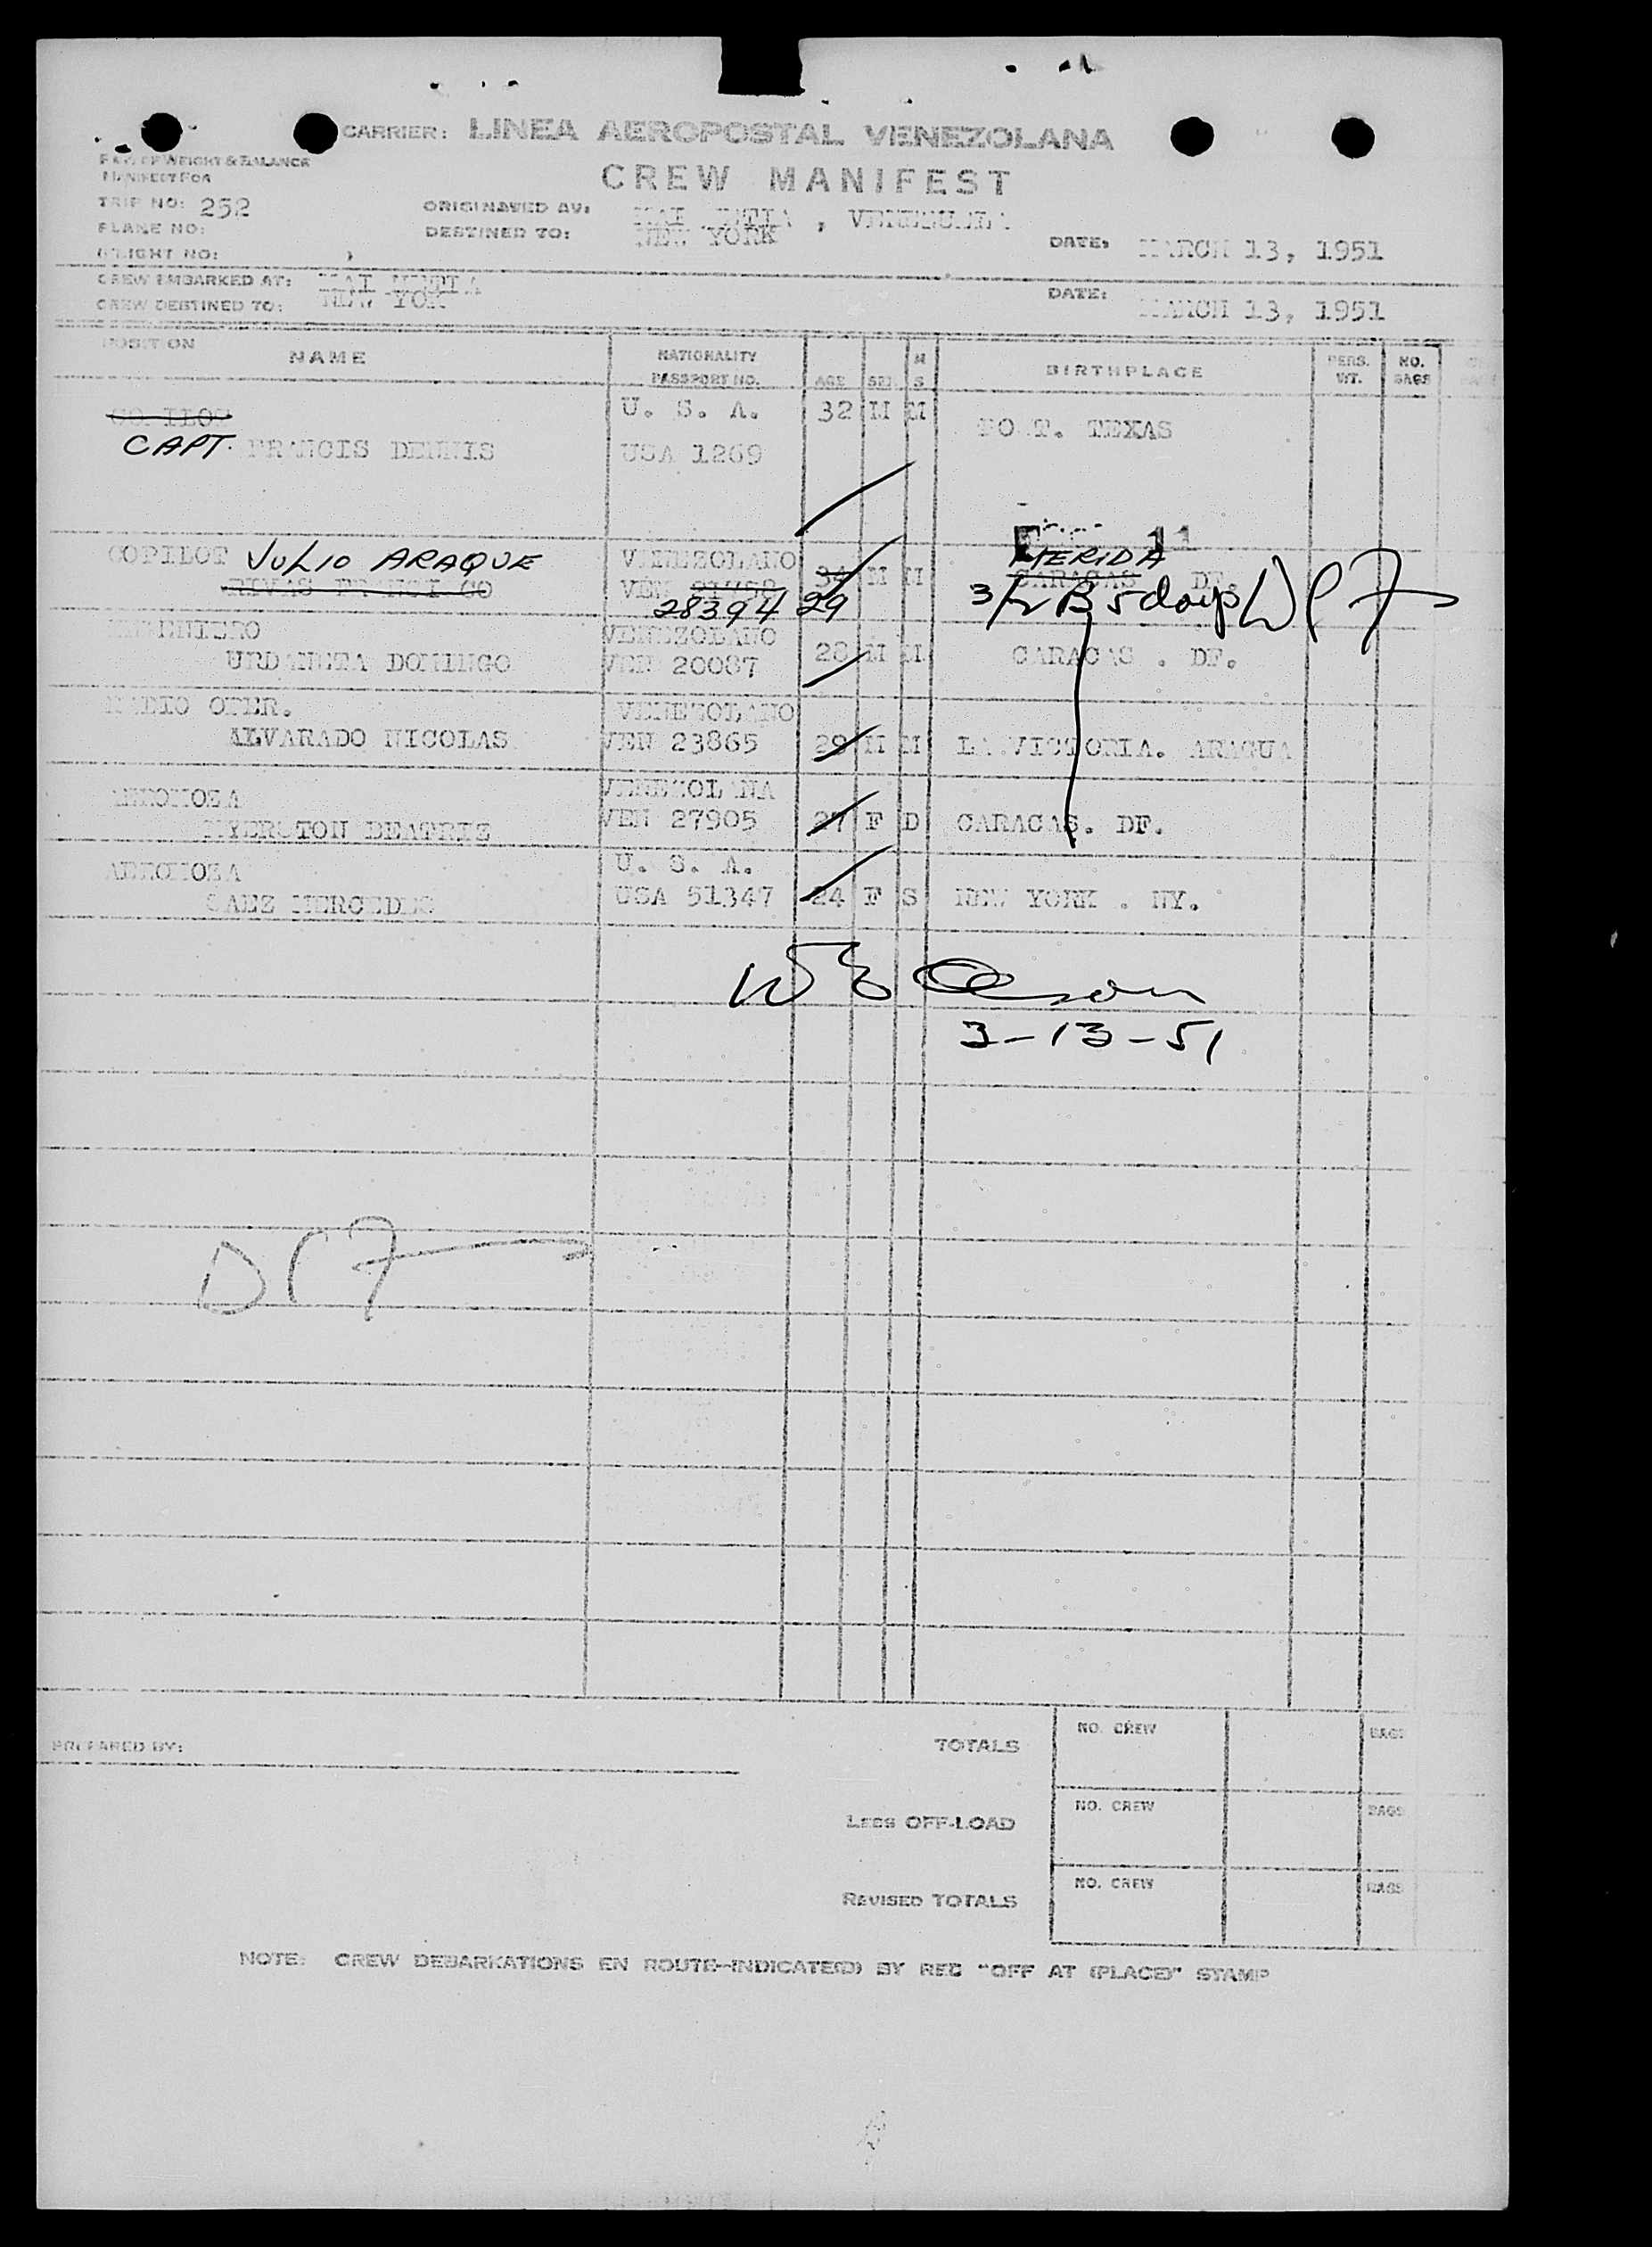 CARRIER: LINEA AEROPOSTAL VENEZOLANA
WEIGHT & BALANCE
MANIFEST FOR
CREW MANIFEST
TRIP NO: 252
ORIGINATED AT: , VENEZUELA
PLANE NO:
DESTINED TO: NEW YORK
DATE: MARCH 13, 1951
FLIGHT NO:
CREW EMBARKED AT:
CREW DESTINED TO: NEW YOR
DATE: MARCH 13, 1951
POSITION NAME NATIONALITY PASSPORT NO. AGE SEX M S BIRTHPLACE PERS. WT. NO. BAGS
COPILOT U. S. A. 32 M M TEXAS
CAPT. FRANCIS DENNIS USA 1269
COPILOT JULIO ARAQUE VENEZOLANO 34 M M MERIDA
RIVAS FRANCISCO VEN CARACAS DF.
28394 29 3/ B 5 days
INGENIERO VENEZOLANO
URDANETA DOMINGO VEN 20087 28 M M CARACAS . DF.
RADIO OPER. VENEZOLANO
ALVARADO NICOLAS VEN 23865 29 M M LA VICTORIA. ARAGUA
AEROMOZA VENEZOLANA
MYERSTON BEATRIZ VEN 27905 27 F D CARACAS. DF.
AEROMOZA U. S. A.
SAEZ MERCEDES USA 51347 24 F S NEW YORK . NY.
3-13-51
PREPARED BY:
TOTALS NO. CREW BAGS
LESS OFF-LOAD NO. CREW BAGS
REVISED TOTALS NO. CREW BAGS
NOTE: CREW DEBARKATIONS EN ROUTE-INDICATE(D) BY RED "OFF AT (PLACE)" STAMP